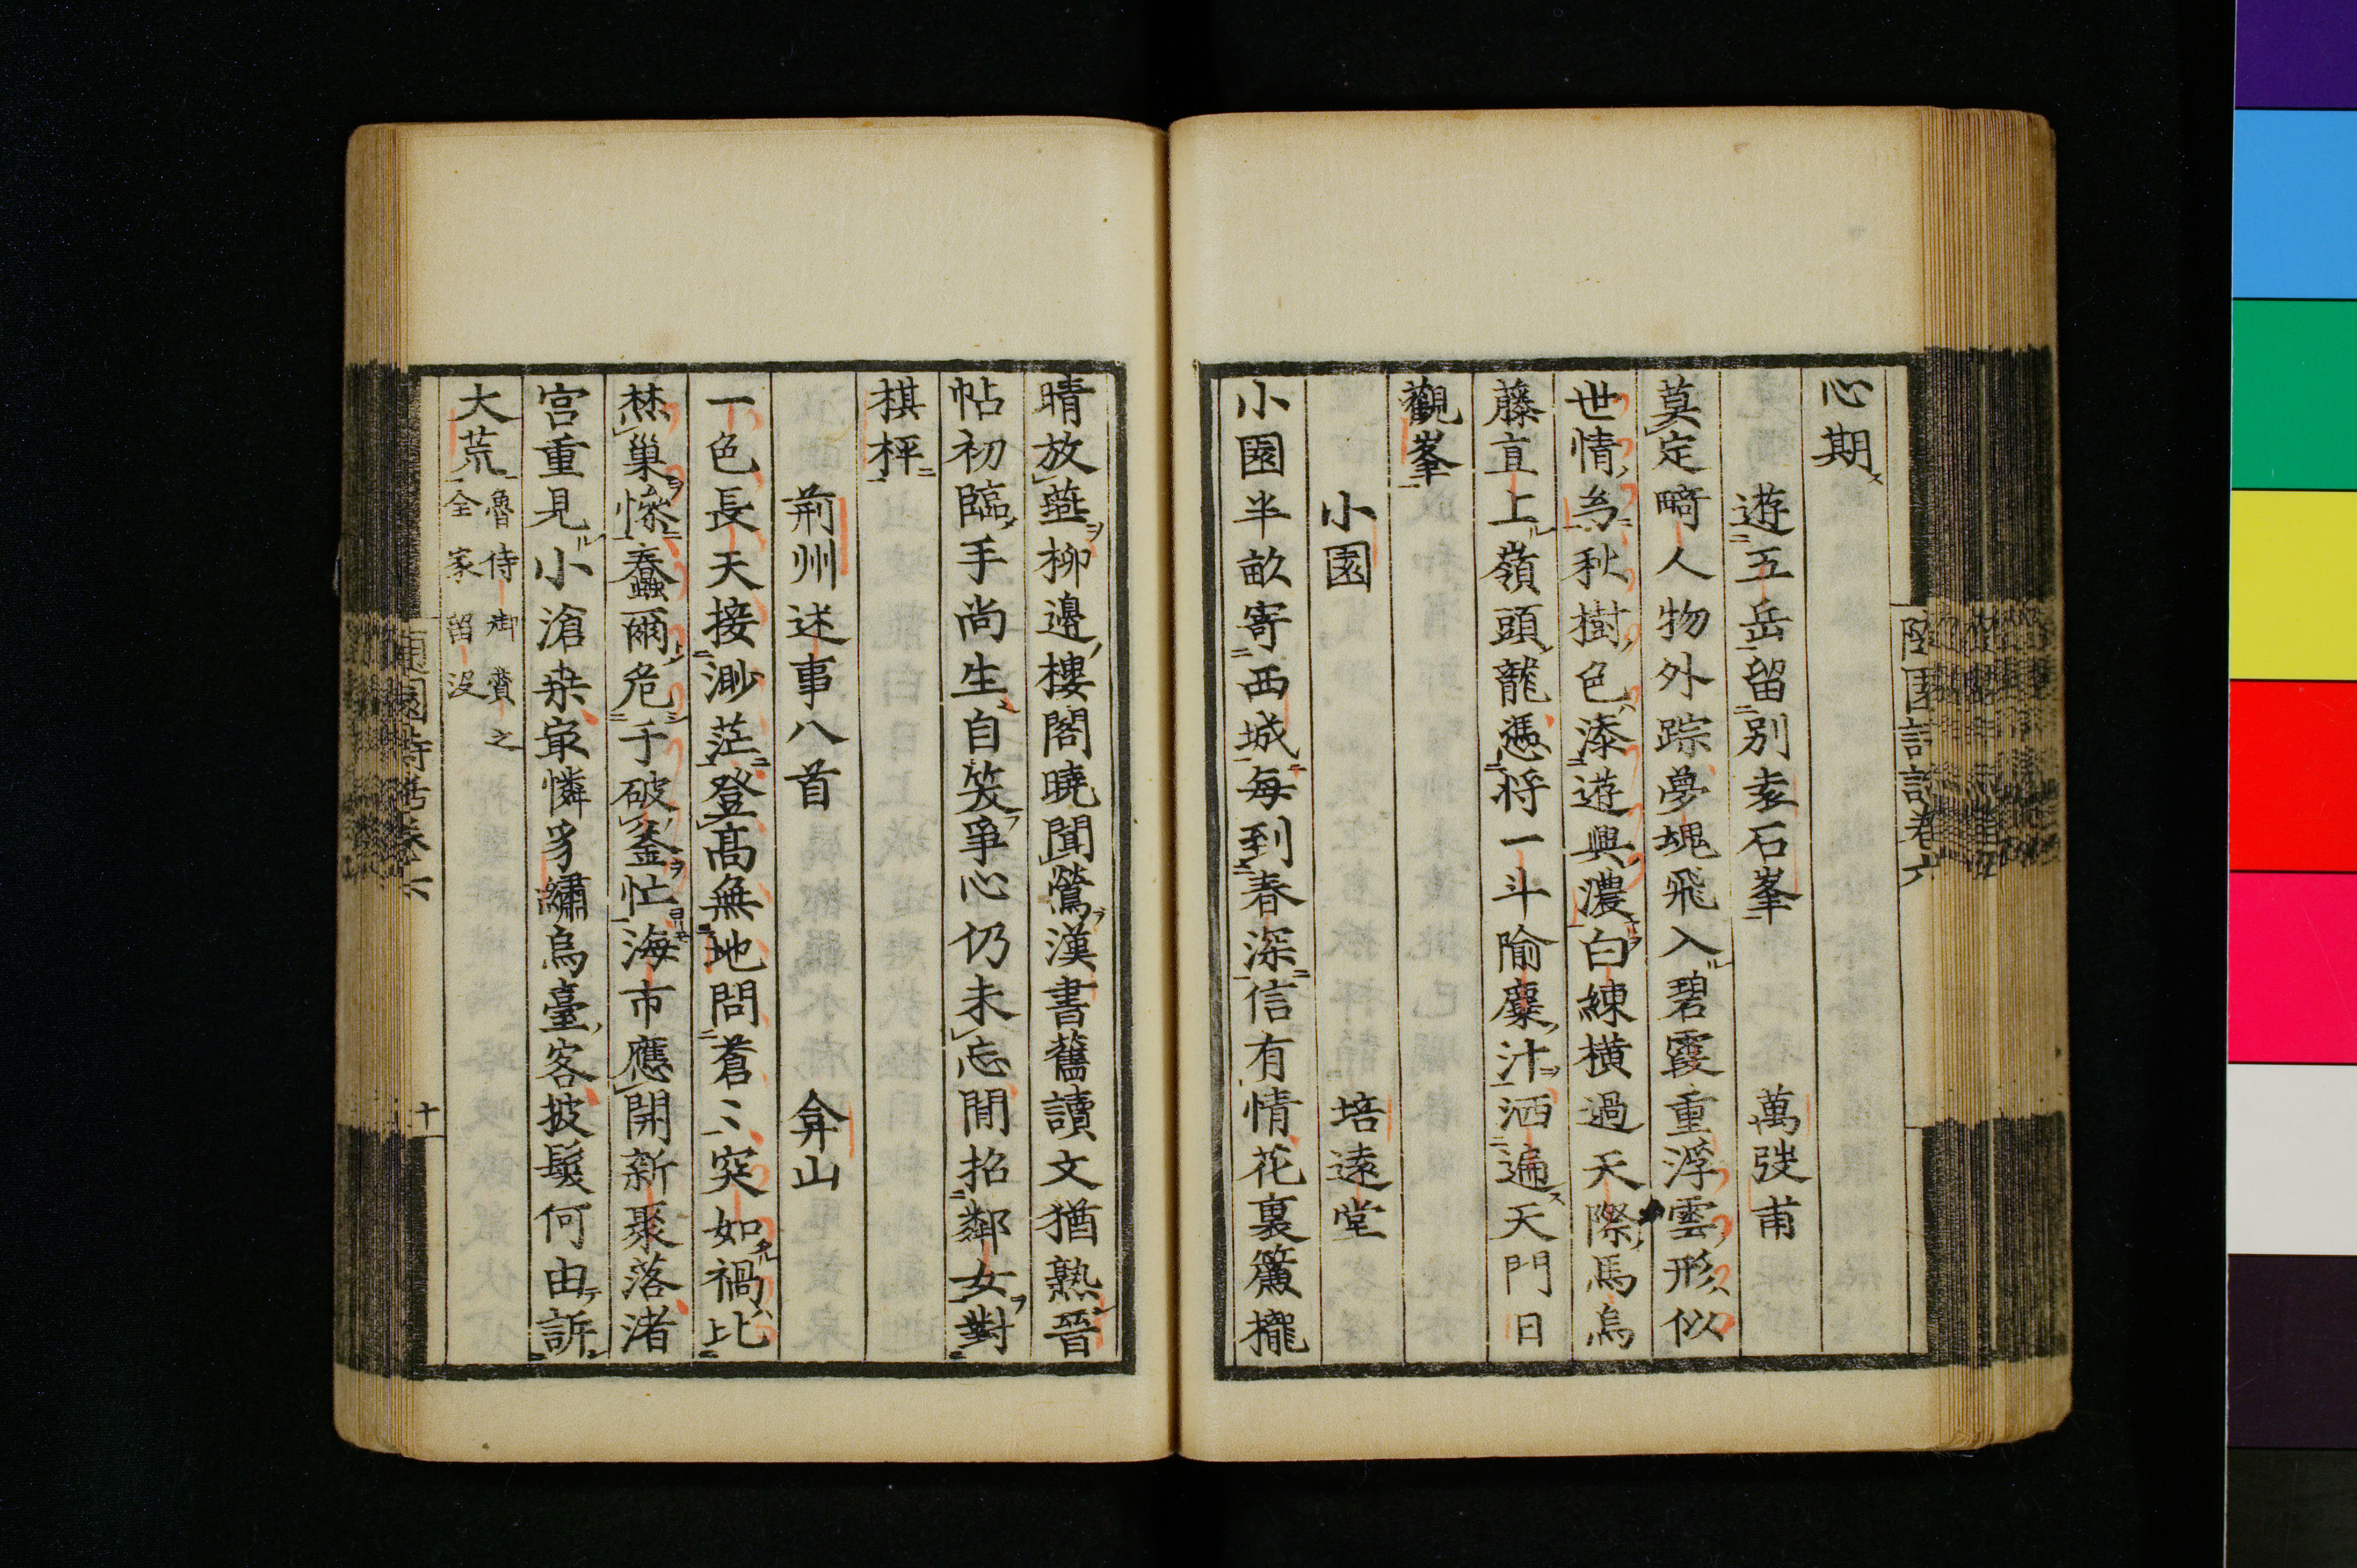 心期
遊五岳留別李石峯 萬弢甫
莫定畸人物外踪夢塊飛入碧霞重浮雲形似
世情為秋樹色添遊興濃白練橫過天際馬烏
藤直上嶺頭龍憑将一斗隃麋汁洒遍天門日
觀峯
小園 培遠堂
小園半畝寄西城每到春深信有情花裏簾櫳
晴放燕柳邊樓閣曉聞鶯漢書舊讀文猶熟晉
帖初臨手尚生自笑爭心仍未忘閒招鄰女對
棋枰
荊州述事八首 弇山
一色長天接渺茫登高無地問蒼〻突如禍比
焚巢慘蠢爾危于破釜忙海市應開新聚落渚
宮重見小滄桒㝡憐豸繡烏臺客披髮何由訴
大荒魯侍御賚之
全家留没
随園詩話卷六
十